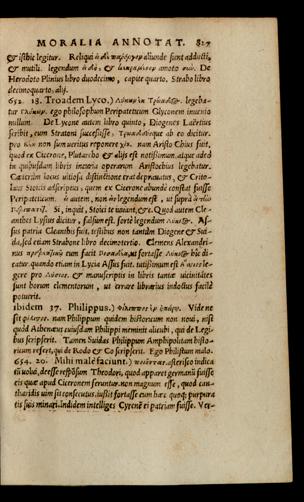 MORALIA ANNOTAT. 827
& istbic legitur. Reliqua aliunde sunt adducti,
& mutili. legendum & amoto De
Herodoto Plinius libro duodecimo, capite quarto. Strabo libro
decimoquarto, alij.
652. 18. Troadem Lyco.) legeba-
tur ego philosophum Peripateticum Glyconem inuenio
nullum. De Lycone autem libro quinto, Diogenes Laertius
scribit, eum Stratoni successisse, ab eo dicitur.
pro non sum veritus reponere nam Aristo Chius fuit,
quod ex Cicerone, Plutarcho & alijs est notissimum. atque adeò
in quibusdam libris inseria operarum Aristoclea legebatur.
Cæterùm locus vitiosa distinctione erat deprauatus, & Crito-
laus Stoicis adscriptus, quem ex Cicerone abundè constat fuisse
Peripateticum. autem, non legendum est, ut suprà
Si, inquit, Stoici te iuuant, &c. Quòd autem Cle-
anthes Lysius dicitur, falsum est. fortè legendum As-
sus patria Cleanthis fuit, testibus non tantùm Diogene & Sui-
da, sed etiam Strabone libro decimotertio. Clemens Alexandri-
nus eum facit ut fortasse hîc di-
catur quando etiam in Lycia Assus fuit. tutissimum est le-
gere pro & manuscriptis in libris tantæ vicinitates
sunt horum elementorum, ut errare librarius indoctus facilè
potuerit.
ibidem 37. Philippus.) Videne
sit nam Philippum quidem historicum non noui, nisi
quòd Athenæus cuiusdam Philippi meminit alicubi, qui de Legi-
bus scripserit. Tamen Suidas Philippum Amphipolitam histo-
ricum refert, qui de Rodo & Co scripserit. Ego Philistum malo.
654. 20. Mihi malè faciunt.) asterisco indica
tū uolui, deesse responsum Theodori, quod apparet germanū fuisse
eis quæ apud Ciceronem feruntur. non magnum esse, quòd can-
tharidis vim sit consecutus. iussit fortasse eum hæc quoque purpura
tis suis minari. Indidem intelliges Cyrenē ei patriam fuisse. Ver-